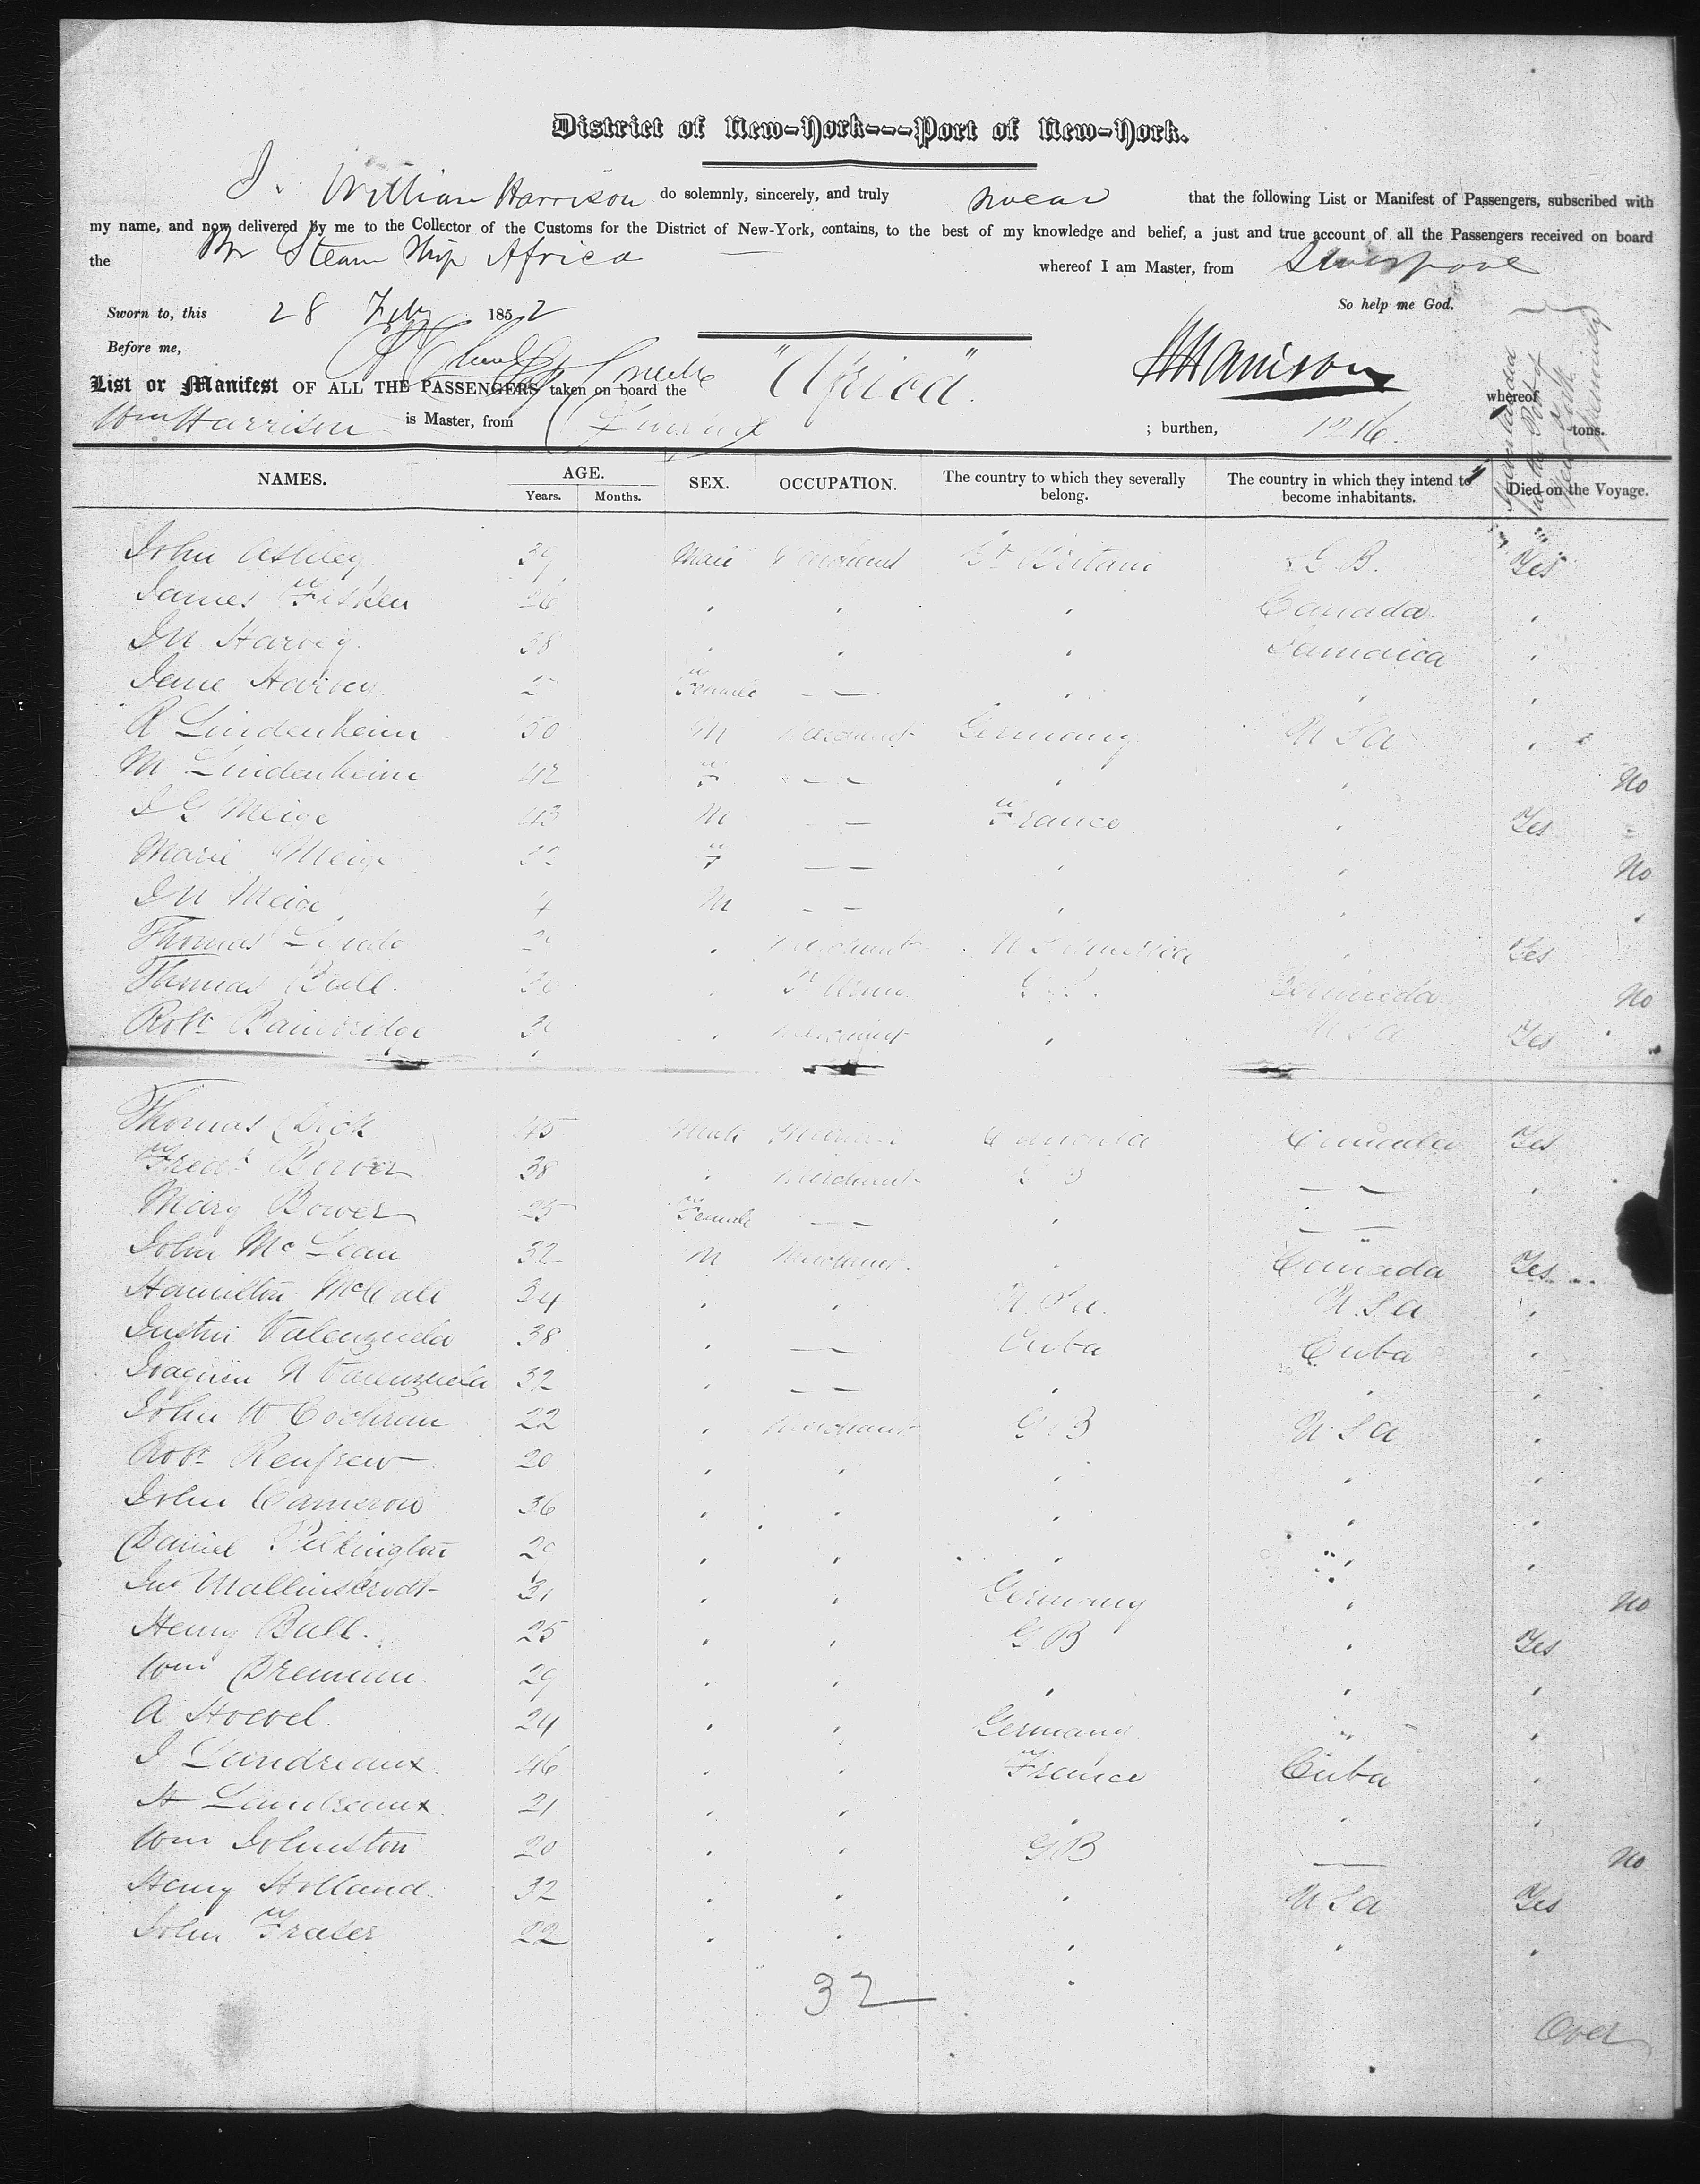 District of New-York---Port of New-York.
I, William Harrison do solemnly, sincerely, and truly swear that the following List or Manifest of Passengers, subscribed with
my name, and now delivered by me to the Collector of the Customs for the District of New-York, contains, to the best of my knowledge and belief, a just and true account of all the Passengers received on board
the Br Steam Ship Africa whereof I am Master, from Liverpool
So help me God.
Sworn to, this 28 Feby 1852
Before me,
WHarrison
List or Manifest OF ALL THE PASSENGERS taken on board the "Africa". whereof
Wm Harrison is Master, from Liverpool ; burthen, 1216. tons.
NAMES. AGE. Years. Months. SEX. OCCUPATION. The country to which they severally belong. The country in which they intend to become inhabitants. Died on the Voyage.
John Ashley 39 Male Gt Britain G.B. Yes
James Fisken 26 " " " Canada "
J M Harvey 38 " " " Jamaica "
Jane Harvey Female — — " " "
R Lindenheim 50 M Merchant Germany U S A "
M Lindenheim 42 F — — " " No
J G Meige 43 M — — France " Yes
Marie Meige F — — " " No
J M Meige 4 M — — " " "
Thomas " Merchant " Yes
Thomas Bull. " Bermuda No
Robt Bainbridge " Merchant " U S A Yes
Thomas Dick 45 Male Canada Canada Yes
Fredk Bower 38 " Merchant G B — — "
Mary Bower 25 Female — — " — —
John McLean 32 M Merchant " Canada Yes
Hamilton 34 " " U.S.a. U.S.a "
Justin Valenzuela 38 " — — Cuba Cuba "
Joaquin N Valenzuela 32 " — — " " "
John W Cochran 22 " Merchant G B U S A "
Robt Renfrew 20 " " " " "
John Cameron 36 " " " " "
Daniel Pilkington 29 " " " " "
Jno Mallinskrodt 31 " " Germany " No
Henry Bull. 25 " " G B " Yes
Wm Drennan 29 " " " " "
A Hoevel 24 " " Germany " "
J Landreaux 46 " " France Cuba "
H Landreaux 21 " " " " "
Wm Johnston 20 " " G B — No
Henry Holland 32 " " " U S A Yes
John Fraser 22 " " " " "
32
Over